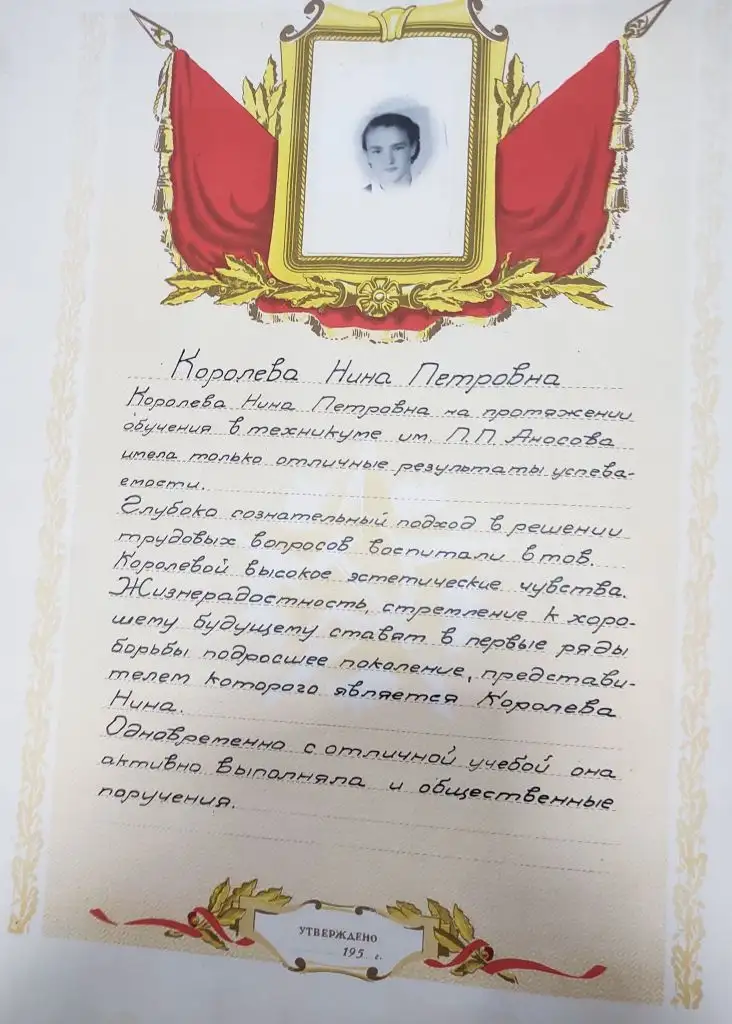 Королева Нина Петровна
Королева Нина Петровна на протяжении
обучения в техникуме им. П.П. Аносова
имела только отличные результаты успева-
емости.
Глубоко сознательный подход в решении
трудовых вопросов воспитали в тов.
Королевой высокое эстетические чувства.
Жизнерадостность, стремление к хоро-
шему будущему ставят в первые ряды
борьбы подросшее поколение, представи-
телем которого является Королева
Нина.
Одновременно с отличной учебой она
активно выполняла и общественные
поручения.
УТВЕРЖДЕНО
195 г.